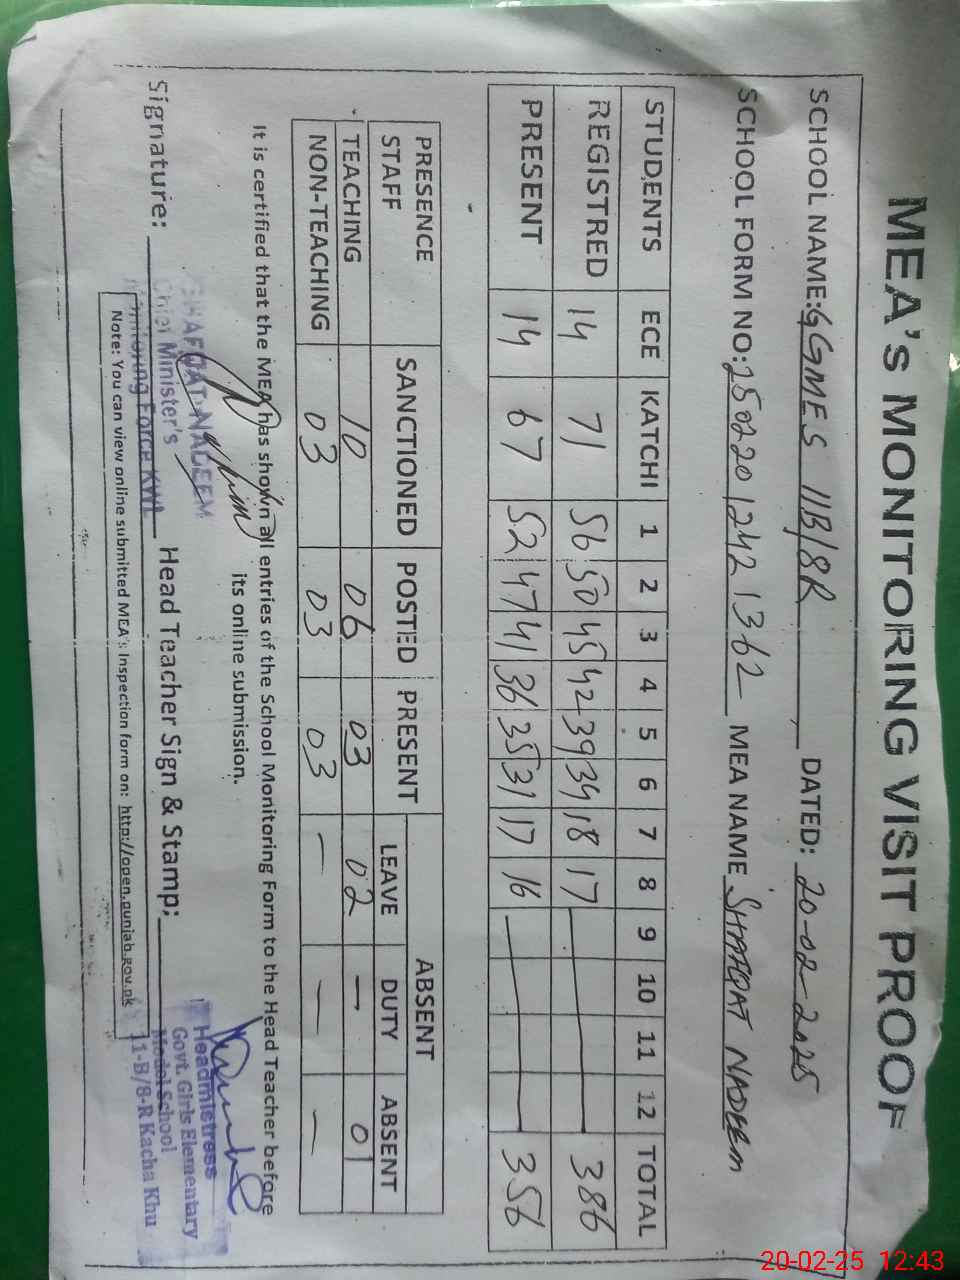 MEA's MONITORING VISIT PROOF
SCHOOL NAME: GGMES 11B/8R DATED: 20-02-2025
SCHOOL FORM NO: 2502201242 1362 MEA NAME SHAFQAT NADEEM
STUDENTS ECE KATCHI 1 2 3 4 5 6 7 8 9 10 11 12 TOTAL
REGISTRED 14 71 56 50 45 42 39 34 18 17 — 386
PRESENT 14 67 52 47 41 36 35 31 17 16 — 356
PRESENCE STAFF SANCTIONED POSTED PRESENT ABSENT
LEAVE DUTY ABSENT
TEACHING 10 06 03 02 — 01
NON-TEACHING 03 03 03 — — —
It is certified that the MEA has shown all entries of the School Monitoring Form to the Head Teacher before
its online submission.
SHAFQAT NADEEM
Chief Minister's
Monitoring Force KWL
Signature: Head Teacher Sign & Stamp:
Headmistress
Govt. Girls Elementary
Model School
11-B/8-R Kacha Khu
Note: You can view online submitted MEA's Inspection form on: http://open.punjab.gov.pk
20-02-25 12:43